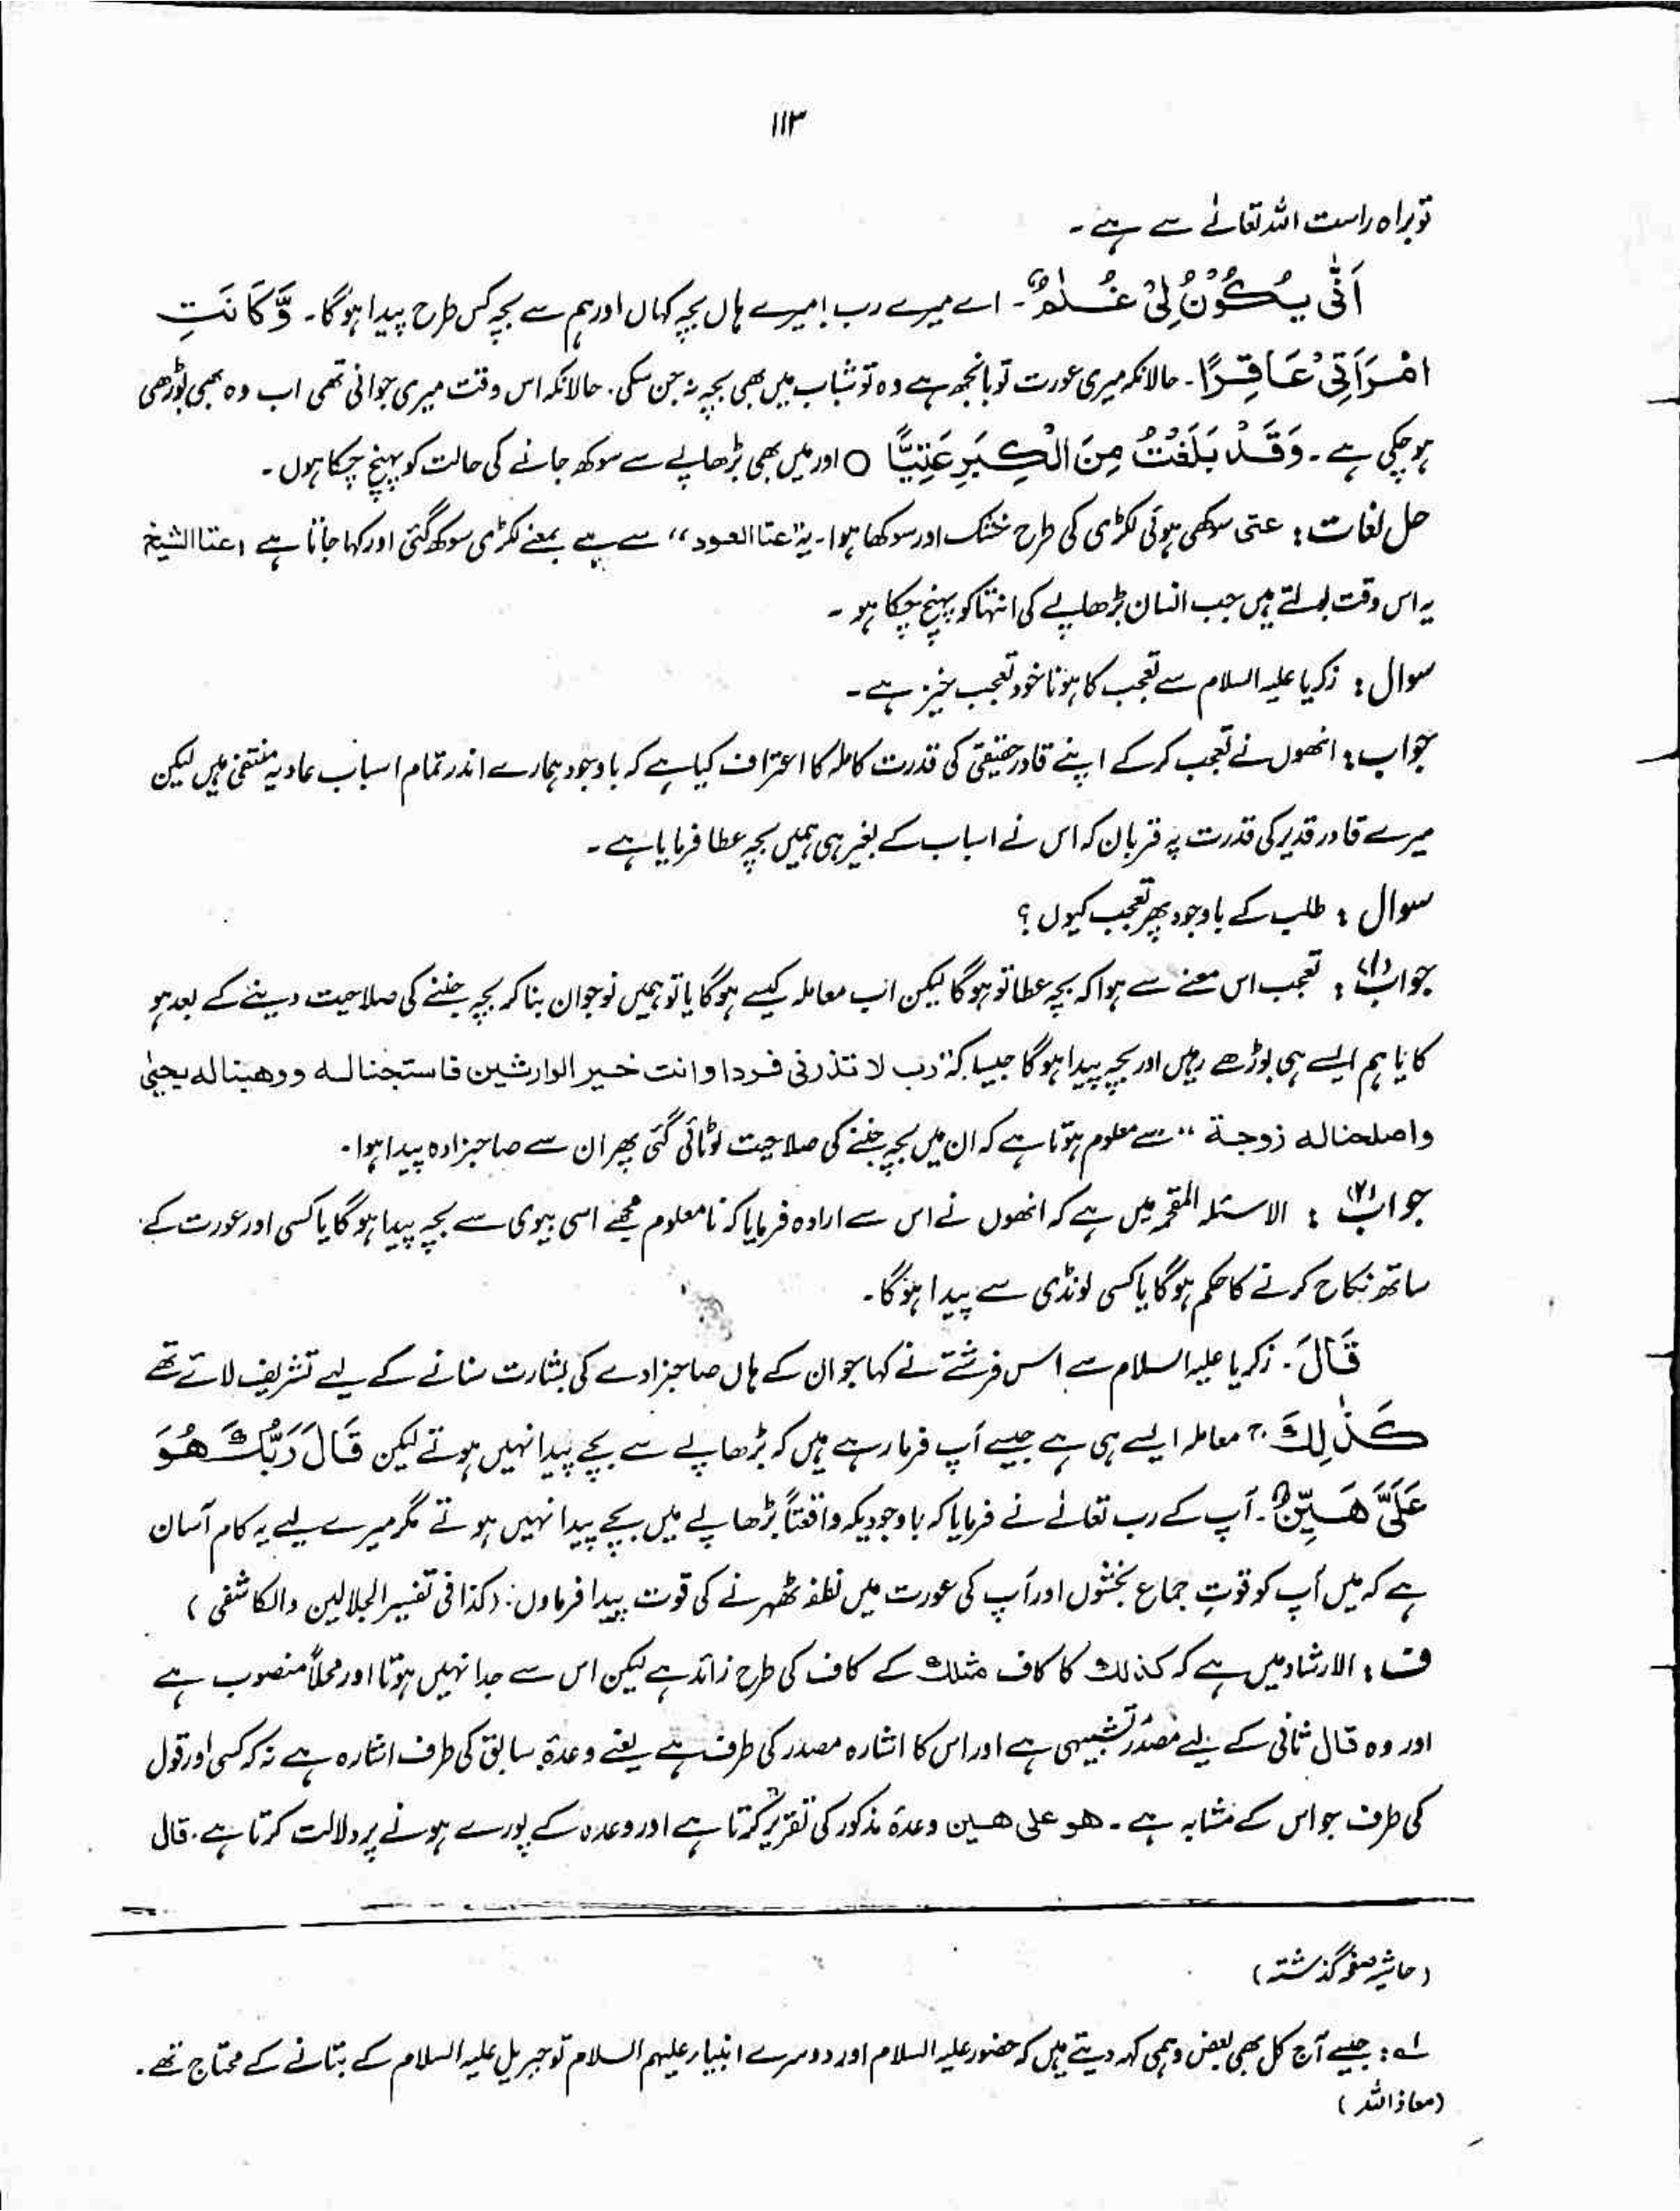 ۱۱۳
تو براہ راست اللہ تعالےٰ سے ہے ۔
اَنّٰی یَکُوْنُ لِیْ غُلٰمٌ ۔ اے میرے رب ! میرے ہاں بچہ کہاں اور ہم سے بچہ کس طرح پیدا ہوگا ۔ وَّکَانَتِ
امْرَاَتِیْ عَاقِرًا ۔ حالانکہ میری عورت تو بانجھ ہے وہ تو شباب میں بھی بچہ نہ جن سکی ۔ حالانکہ اس وقت میری جوانی تھی اب وہ بھی بوڑھی
ہو چکی ہے ۔ وَقَدْ بَلَغْتُ مِنَ الْکِبَرِ عَتِیًّا ○ اور میں بھی بڑھاپے سے سوکھ جانے کی حالت کو پہنچ چکا ہوں ۔
حل لغات : عتی سوکھی ہوئی لکڑی کی طرح خشک اور سوکھا ہوا ۔ یہ "عتا العود" سے ہے بمعنے لکڑی سوکھ گئی اور کہا جاتا ہے ، عتا الشیخ
یہ اس وقت بولتے ہیں جب انسان بڑھاپے کی انتہا کو پہنچ چکا ہو ۔
سوال : زکریا علیہ السلام سے تعجب کا ہونا خود تعجب خیز ہے ۔
جواب : انھوں نے تعجب کرکے اپنے قادر حقیقی کی قدرت کاملہ کا اعتراف کیا ہے کہ باوجود ہمارے اندر تمام اسباب عادیہ منتفی ہیں لیکن
میرے قادر قدیر کی قدرت پہ قربان کہ اس نے اسباب کے بغیر ہی ہمیں بچہ عطا فرمایا ہے ۔
سوال : طلب کے باوجود پھر تعجب کیوں ؟
جواب (۱) : تعجب اس معنے سے ہوا کہ بچہ عطا تو ہوگا لیکن اب معاملہ کیسے ہوگا یا تو ہمیں نوجوان بنا کر بچہ جننے کی صلاحیت دینے کے بعد ہو
گا یا ہم ایسے ہی بوڑھے رہیں اور بچہ پیدا ہوگا جیسا کہ "رب لا تذرنی فردا وانت خیر الوارثین فاستجنا لہ ووھبنا لہ یحییٰ
واصلحنا لہ زوجۃ" سے معلوم ہوتا ہے کہ ان میں بچہ جننے کی صلاحیت لوٹائی گئی پھر ان سے صاحبزادہ پیدا ہوا ۔
جواب (۲) : الاسئلہ المقحمہ میں ہے کہ انھوں نے اس سے ارادہ فرمایا کہ نامعلوم مجھے اسی بیوی سے بچہ پیدا ہوگا یا کسی اور عورت کے
ساتھ نکاح کرنے کا حکم ہوگا یا کسی لونڈی سے پیدا ہوگا ۔
قَالَ ۔ زکریا علیہ السلام سے اس فرشتے نے کہا جو ان کے ہاں صاحبزادے کی بشارت سنانے کے لیے تشریف لاتے تھے
کَذٰلِکَ ج معاملہ ایسے ہی ہے جیسے آپ فرما رہے ہیں کہ بڑھاپے سے بچے پیدا نہیں ہوتے لیکن قَالَ رَبُّکَ ھُوَ
عَلَیَّ ھَیِّنٌ ۔ آپ کے رب تعالےٰ نے فرمایا کہ باوجودیکہ واقعتاً بڑھاپے میں بچے پیدا نہیں ہوتے مگر میرے لیے یہ کام آسان
ہے کہ میں آپ کو قوتِ جماع بخشوں اور آپ کی عورت میں نطفہ ٹھہرنے کی قوت پیدا فرماؤں ۔ (کذا فی تفسیر الجلالین والکاشفی )
ف : الارشاد میں ہے کہ کذلک کا کاف مثلک کے کاف کی طرح زائد ہے لیکن اس سے جدا نہیں ہوتا اور محلاً منصوب ہے
اور وہ قال ثانی کے لیے مصدر تشبیہی ہے اور اس کا اشارہ مصدر کی طرف ہے یعنے وعدۂ سابق کی طرف اشارہ ہے نہ کہ کسی اور قول
کی طرف جو اس کے مشابہ ہے ۔ ھو علی ھین وعدۂ مذکور کی تقریر کرتا ہے اور وعدہ کے پورے ہونے پر دلالت کرتا ہے ۔ قال
(حاشیہ صفحہ گذشتہ)
لہ : جیسے آج کل بھی بعض وہمی کہہ دیتے ہیں کہ حضور علیہ السلام اور دوسرے انبیاء علیہم السلام تو جبریل علیہ السلام کے بتانے کے محتاج تھے ۔
(معاذ اللہ)